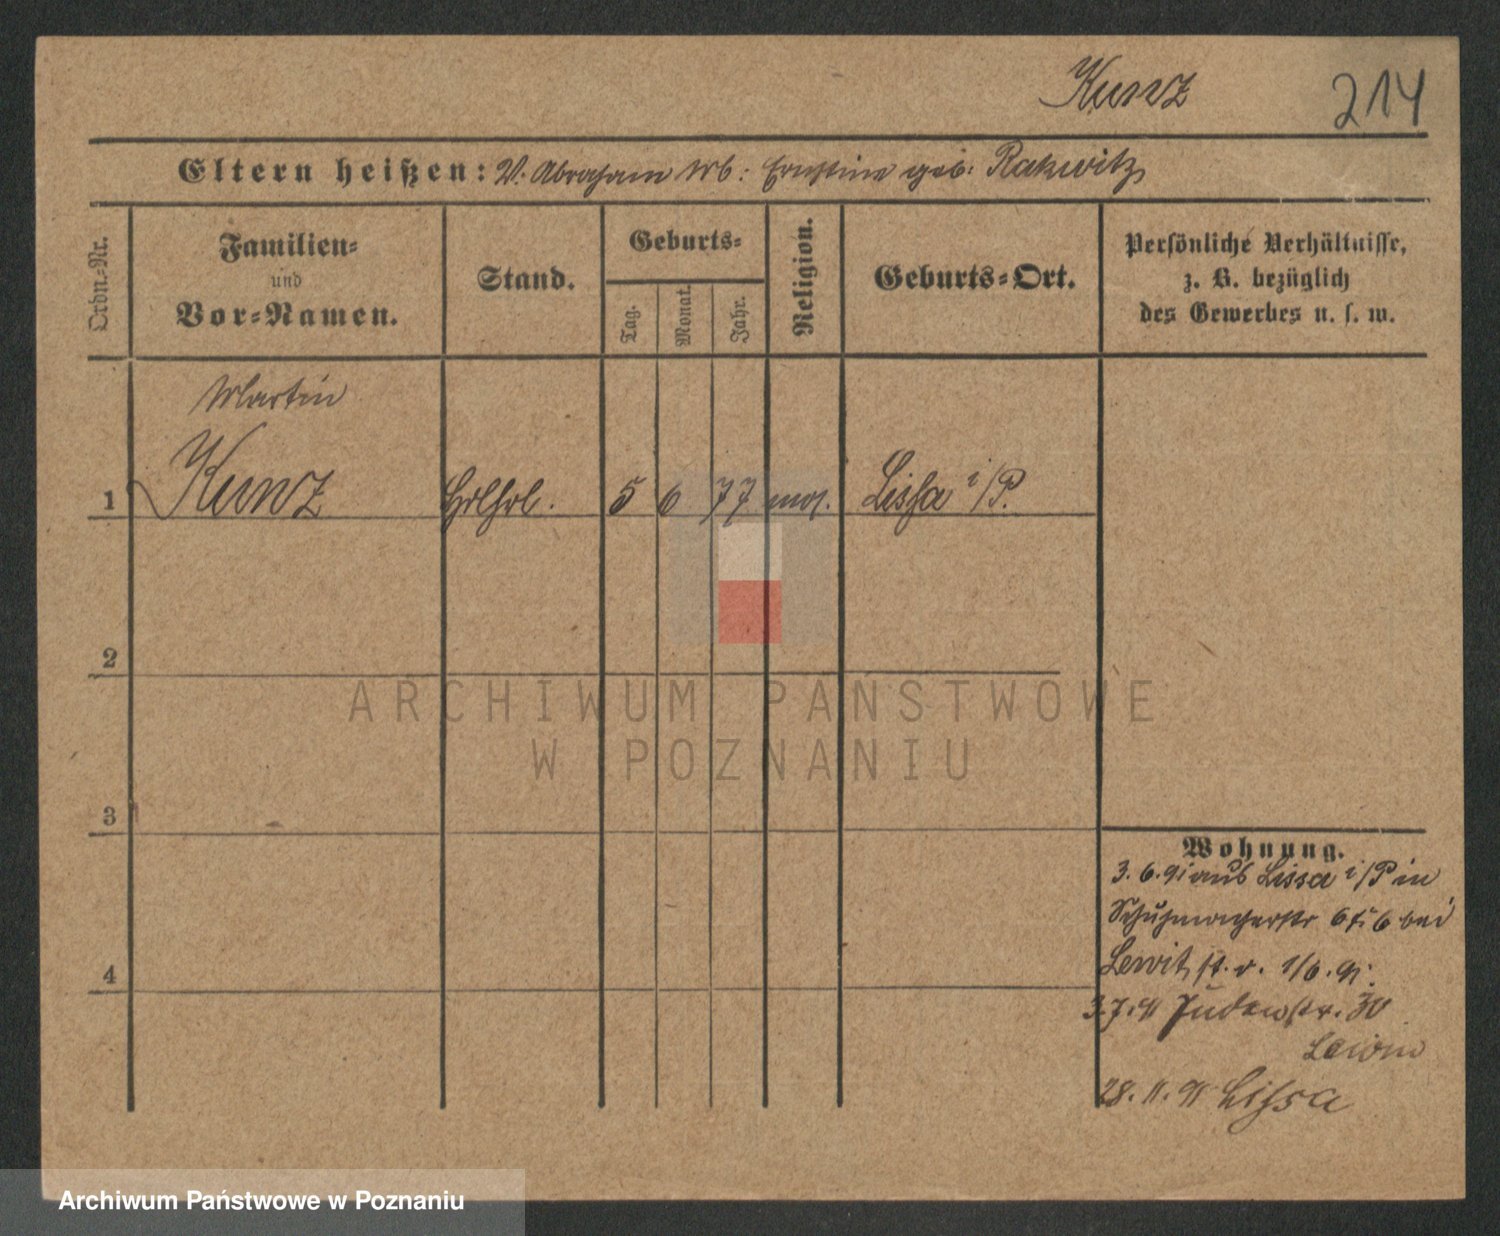 Kunz 214
Eltern heißen: V. Abraham M: Ernstine geb. Rakwitz
Ordn.-Nr.
Familien-
und
Vor-Namen.
Stand.
Geburts-
Tag.
Monat.
Jahr.
Religion.
Geburts-Ort.
Persönliche Verhältnisse,
z. B. bezüglich
des Gewerbes u. s. w.
Martin
1 Kunz 5 6 77 mos. Lissa i/P.
2
3
4
Wohnung.
3. 6. 91 aus Lissa i/P in
Schuhmacherstr 6 6 bei
Lewit 1/6. 91.
3.7.91 Judenstr. 30
Lewin
28. 11. 91 Lissa
ARCHIWUM PAŃSTWOWE
W POZNANIU
Archiwum Państwowe w Poznaniu